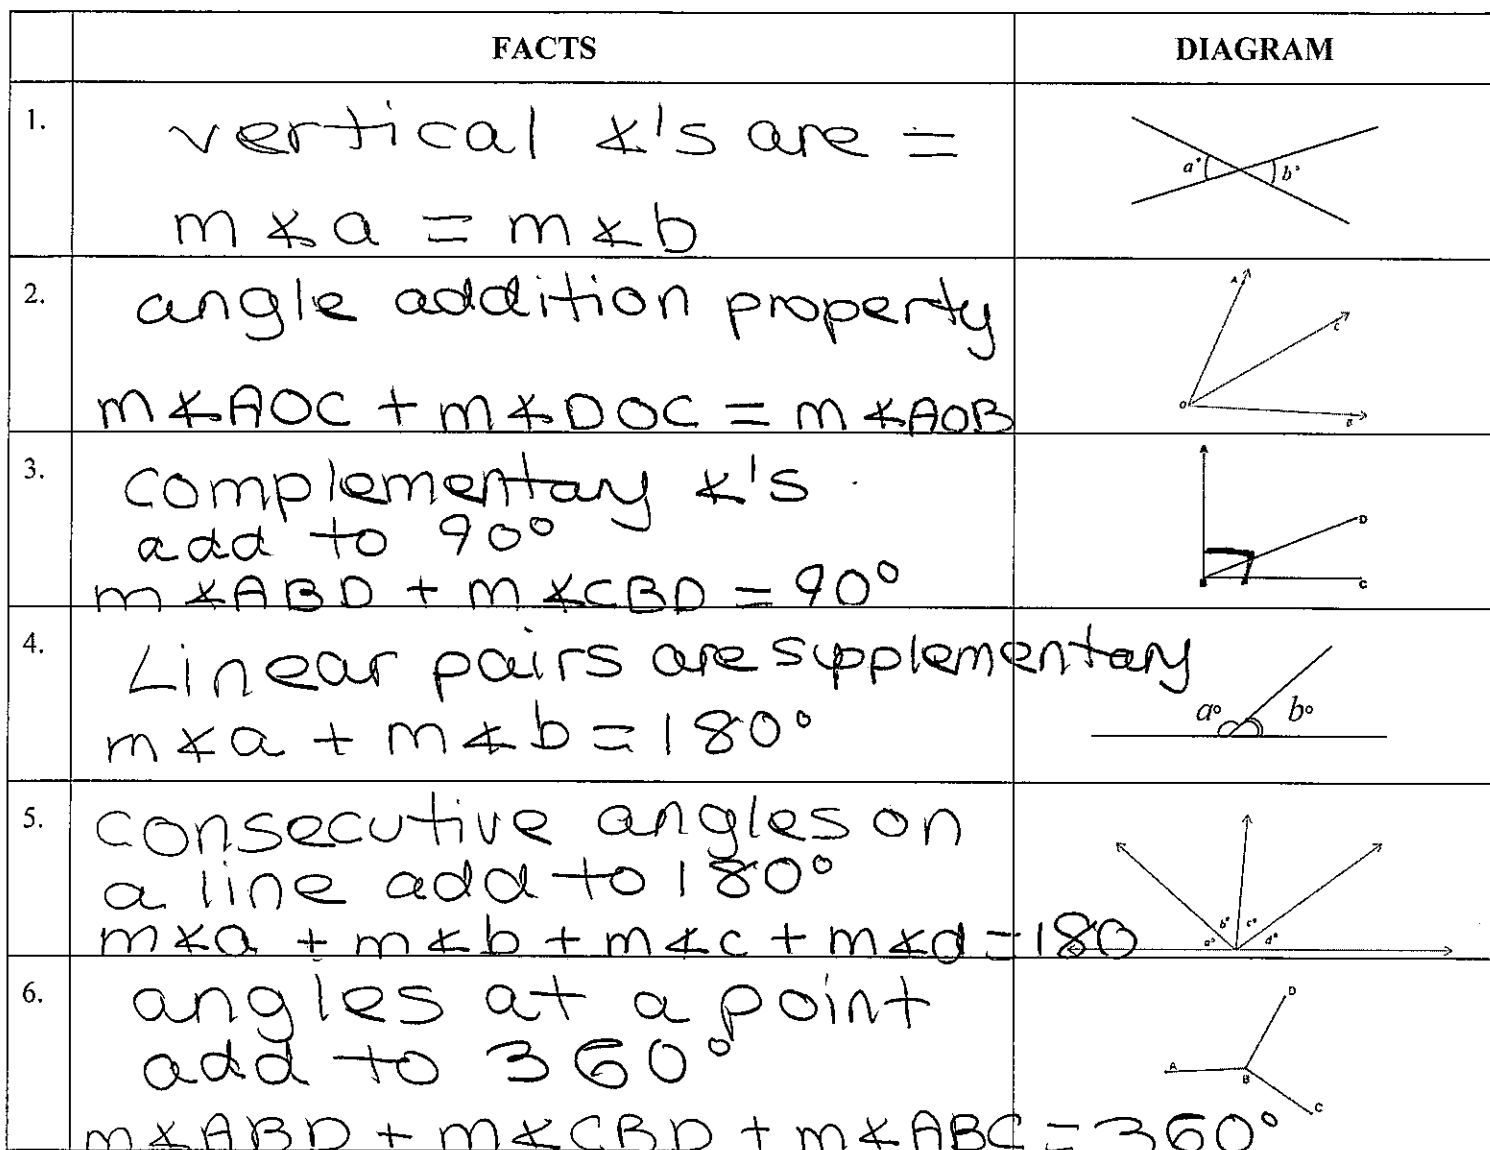 FACTS DIAGRAM
1. vertical ∡'s are =
m∡a = m∡b
a° b°
2. angle addition property
m∡AOC + m∡DOC = m∡AOB
A C O B
3. complementary ∡'s
add to 90°
m∡ABD + m∡CBD = 90°
A D B C
4. Linear pairs are supplementary
m∡a + m∡b = 180°
a° b°
5. consecutive angles on
a line add to 180°
m∡a + m∡b + m∡c + m∡d = 180
a° b° c° d°
6. angles at a point
add to 360°
m∡ABD + m∡CBD + m∡ABC = 360°
D A B C